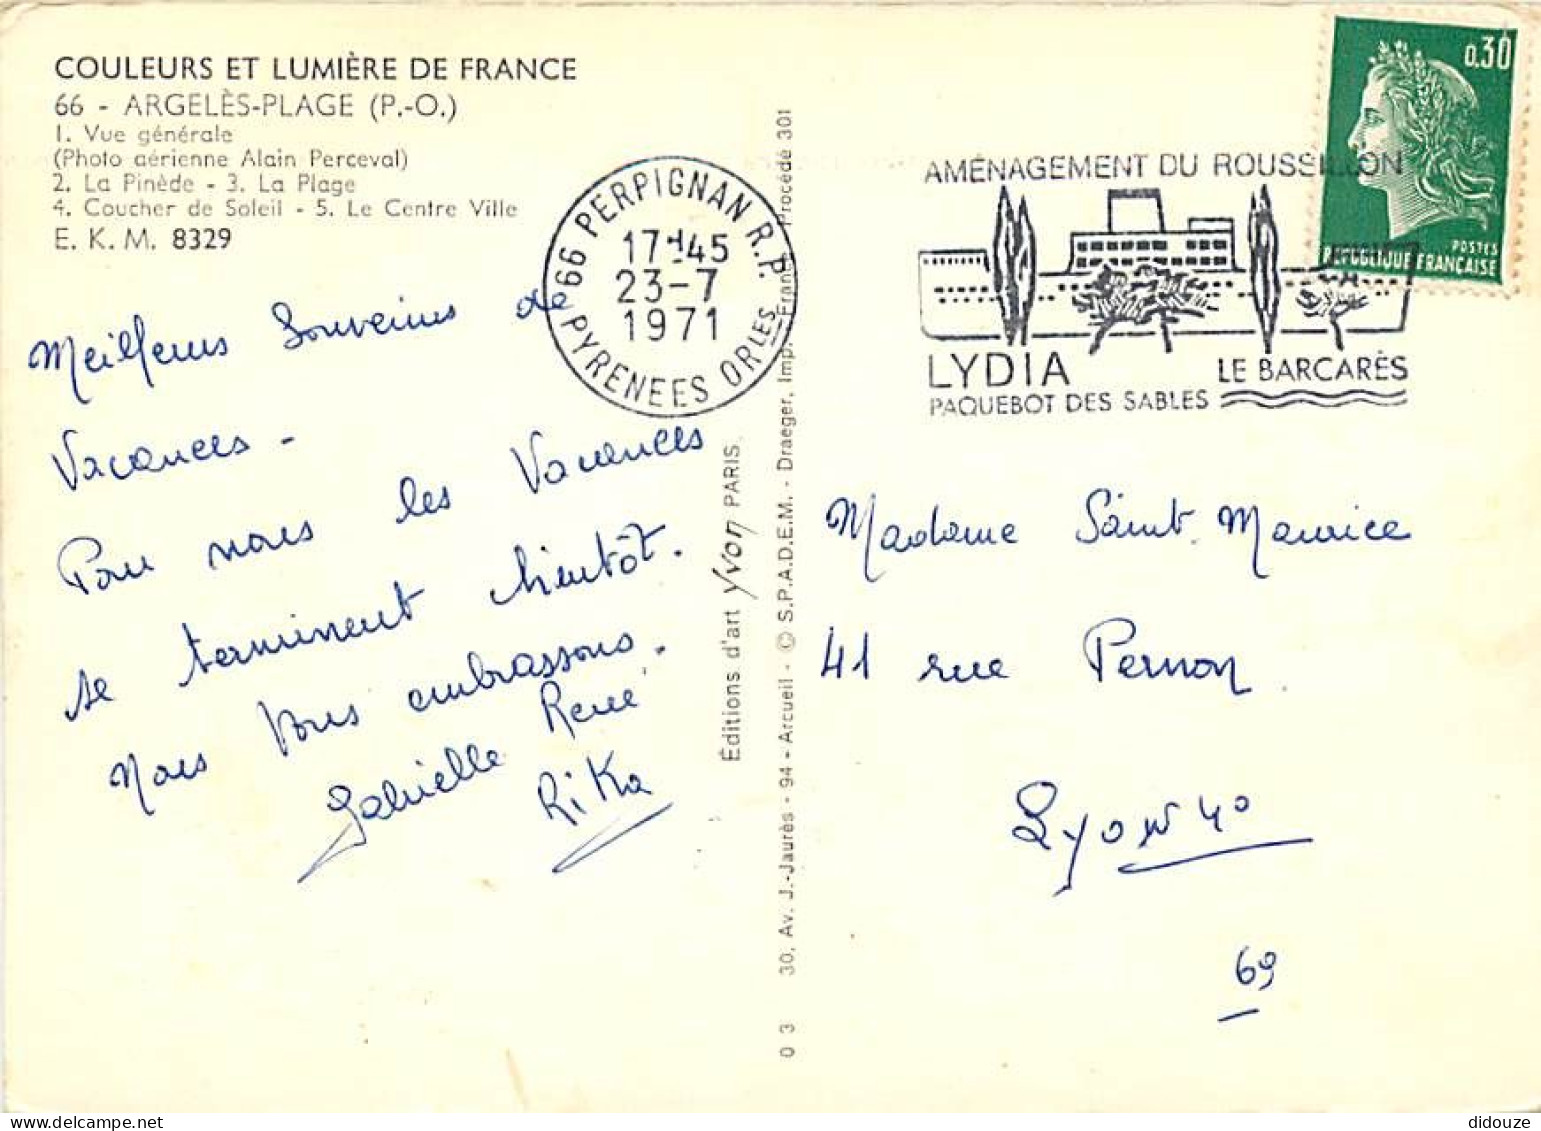 COULEURS ET LUMIÈRE DE FRANCE
66 - ARGELÈS-PLAGE (P.-O.)
1. Vue générale
(Photo aérienne Alain Perceval)
2. La Pinède - 3. La Plage
4. Coucher de Soleil - 5. Le Centre Ville
E. K. M. 8329
Meilleurs Souvenirs de
Vacances -
Pour nous les Vacances
se terminent bientôt.
Nous Vous embrassons.
Gabrielle René
Rika
66 PERPIGNAN R.P.
17H45
23-7
1971
PYRENEES ORLES
Éditions d'art Yvon PARIS
0 3 30, Av. J.-Jaurès - 94 - Arcueil - © S.P.A.D.E.M. - Draeger, Imp. - France Procédé 301
0,30
POSTES
REPUBLIQUE FRANÇAISE
AMÉNAGEMENT DU ROUSSILLON
LYDIA
PAQUEBOT DES SABLES
LE BARCARÈS
Madame Saint. Maurice
41 rue Pernon
Lyon 4°
69
didouze